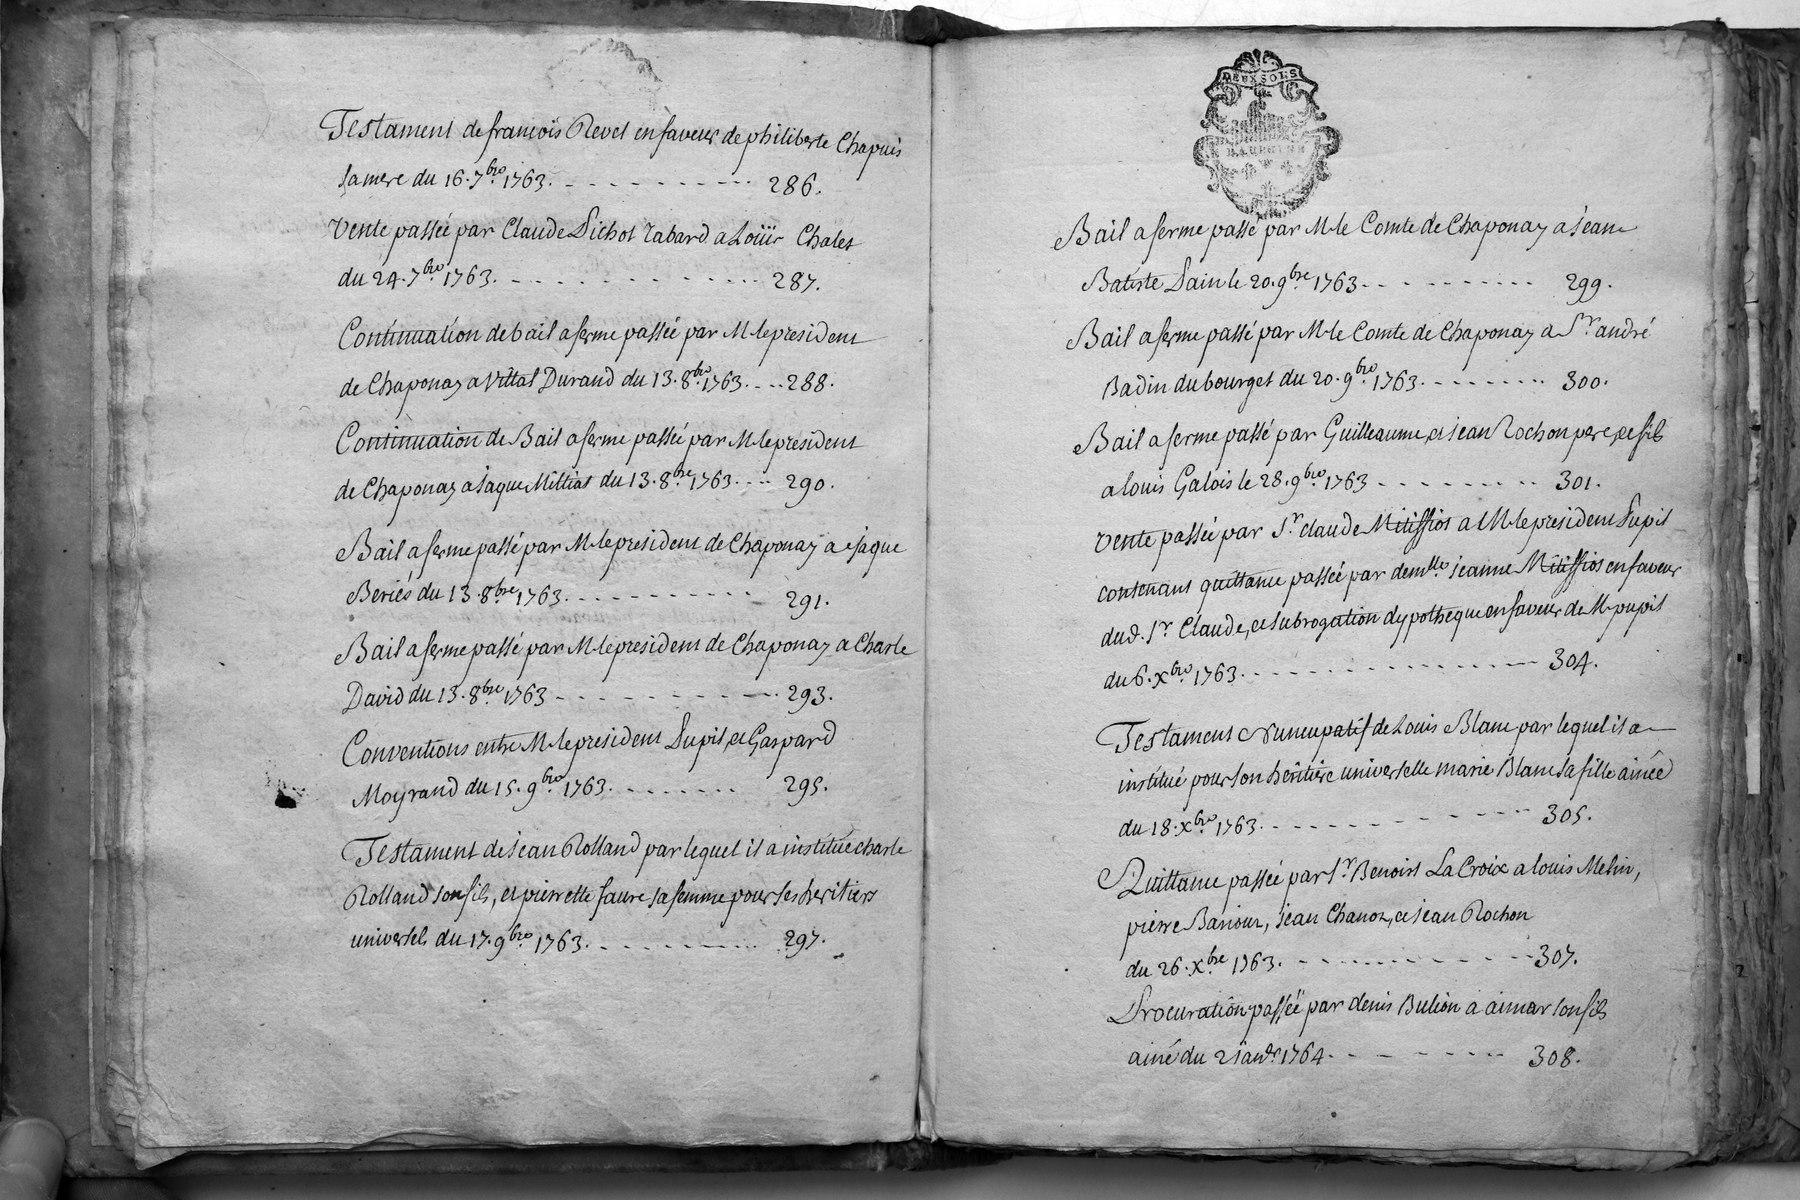 Testament de francois Revel en faveur de philiberte Chapuis
sa mere du 16. 7bre 1763. - - - - - - - - - - 286.
Vente passée par Claude Pichot Tabard a Loüis Chalet
du 24. 7bre 1763. - - - - - - - - - - 287.
Continuation de bail a ferme passée par M. le president
de Chaponay a Vittal Durand du 13. 8bre 1763. - - - 288.
Continuation de Bail a ferme passée par M. le president
de Chaponay a Jaque Mittias du 13. 8bre 1763. - - - 290.
Bail a ferme passé par M. le president de Chaponay a Jaque
Beriés du 13. 8bre 1763. - - - - - - - - - 291.
Bail a ferme passé par M. le president de Chaponay a Charle
David du 13. 8bre 1763 - - - - - - - - - 293.
Conventions entre M. le president Pupil, et Gaspard
Moyrand du 15. 9bre 1763. - - - - - - - 295.
Testament de Jean Rolland par lequel il a institué charle
Rolland son fils, et pierrette faure sa femme pour ses heritiers
universels du 17. 9bre 1763. - - - - - - - - - 297.
DEUX SOLS
Bail a ferme passé par M. le Comte de Chaponay a Jean
Batiste Pain le 20. 9bre 1763. - - - - - - - - - 299.
Bail a ferme passé par M. le Comte de Chaponay a Sr. andré
Badin du bourget du 20. 9bre 1763. - - - - - - - - 300.
Bail a ferme passé par Guilleaume, et Jean Rochon pere, et fils
a louis Galois le 28. 9bre 1763 - - - - - - - - - 301.
Vente passée par Sr. claude Mitiffios a M. le president Pupil
contenant quittance passée par demlle. Jeanne Mitiffios en faveur
dud. Sr. Claude, et subrogation dypotheque en faveur de M. pupil
du 6. xbre 1763. - - - - - - - - - - - - - 304.
Testament Nuncupatif de Louis Blanc par lequel il a
institué pour son heritiere universelle marie Blanc sa fille ainée
du 18. xbre 1763. - - - - - - - - - - - 305.
Quittance passée par Sr. Benoist La Croix a louis Melin,
pierre Barioux, Jean Chanoz, et Jean Rochon
du 26. xbre 1763. - - - - - - - - - - - 307.
Procuration passée par denis Bulion a aimar son fils
ainé du 2 Janvr. 1764. - - - - - - - - - 308.